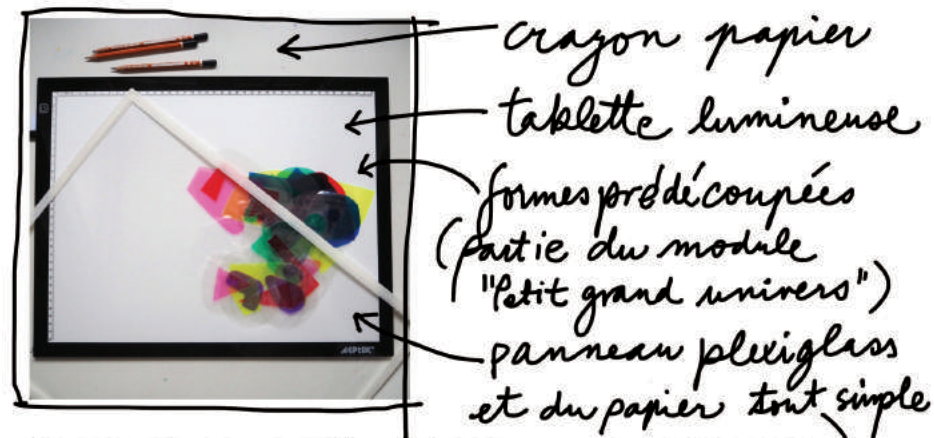 crayon papier
tablette lumineuse
formes prédécoupées
(partie du module
"Petit grand univers")
panneau plexiglass
et du papier tout simple